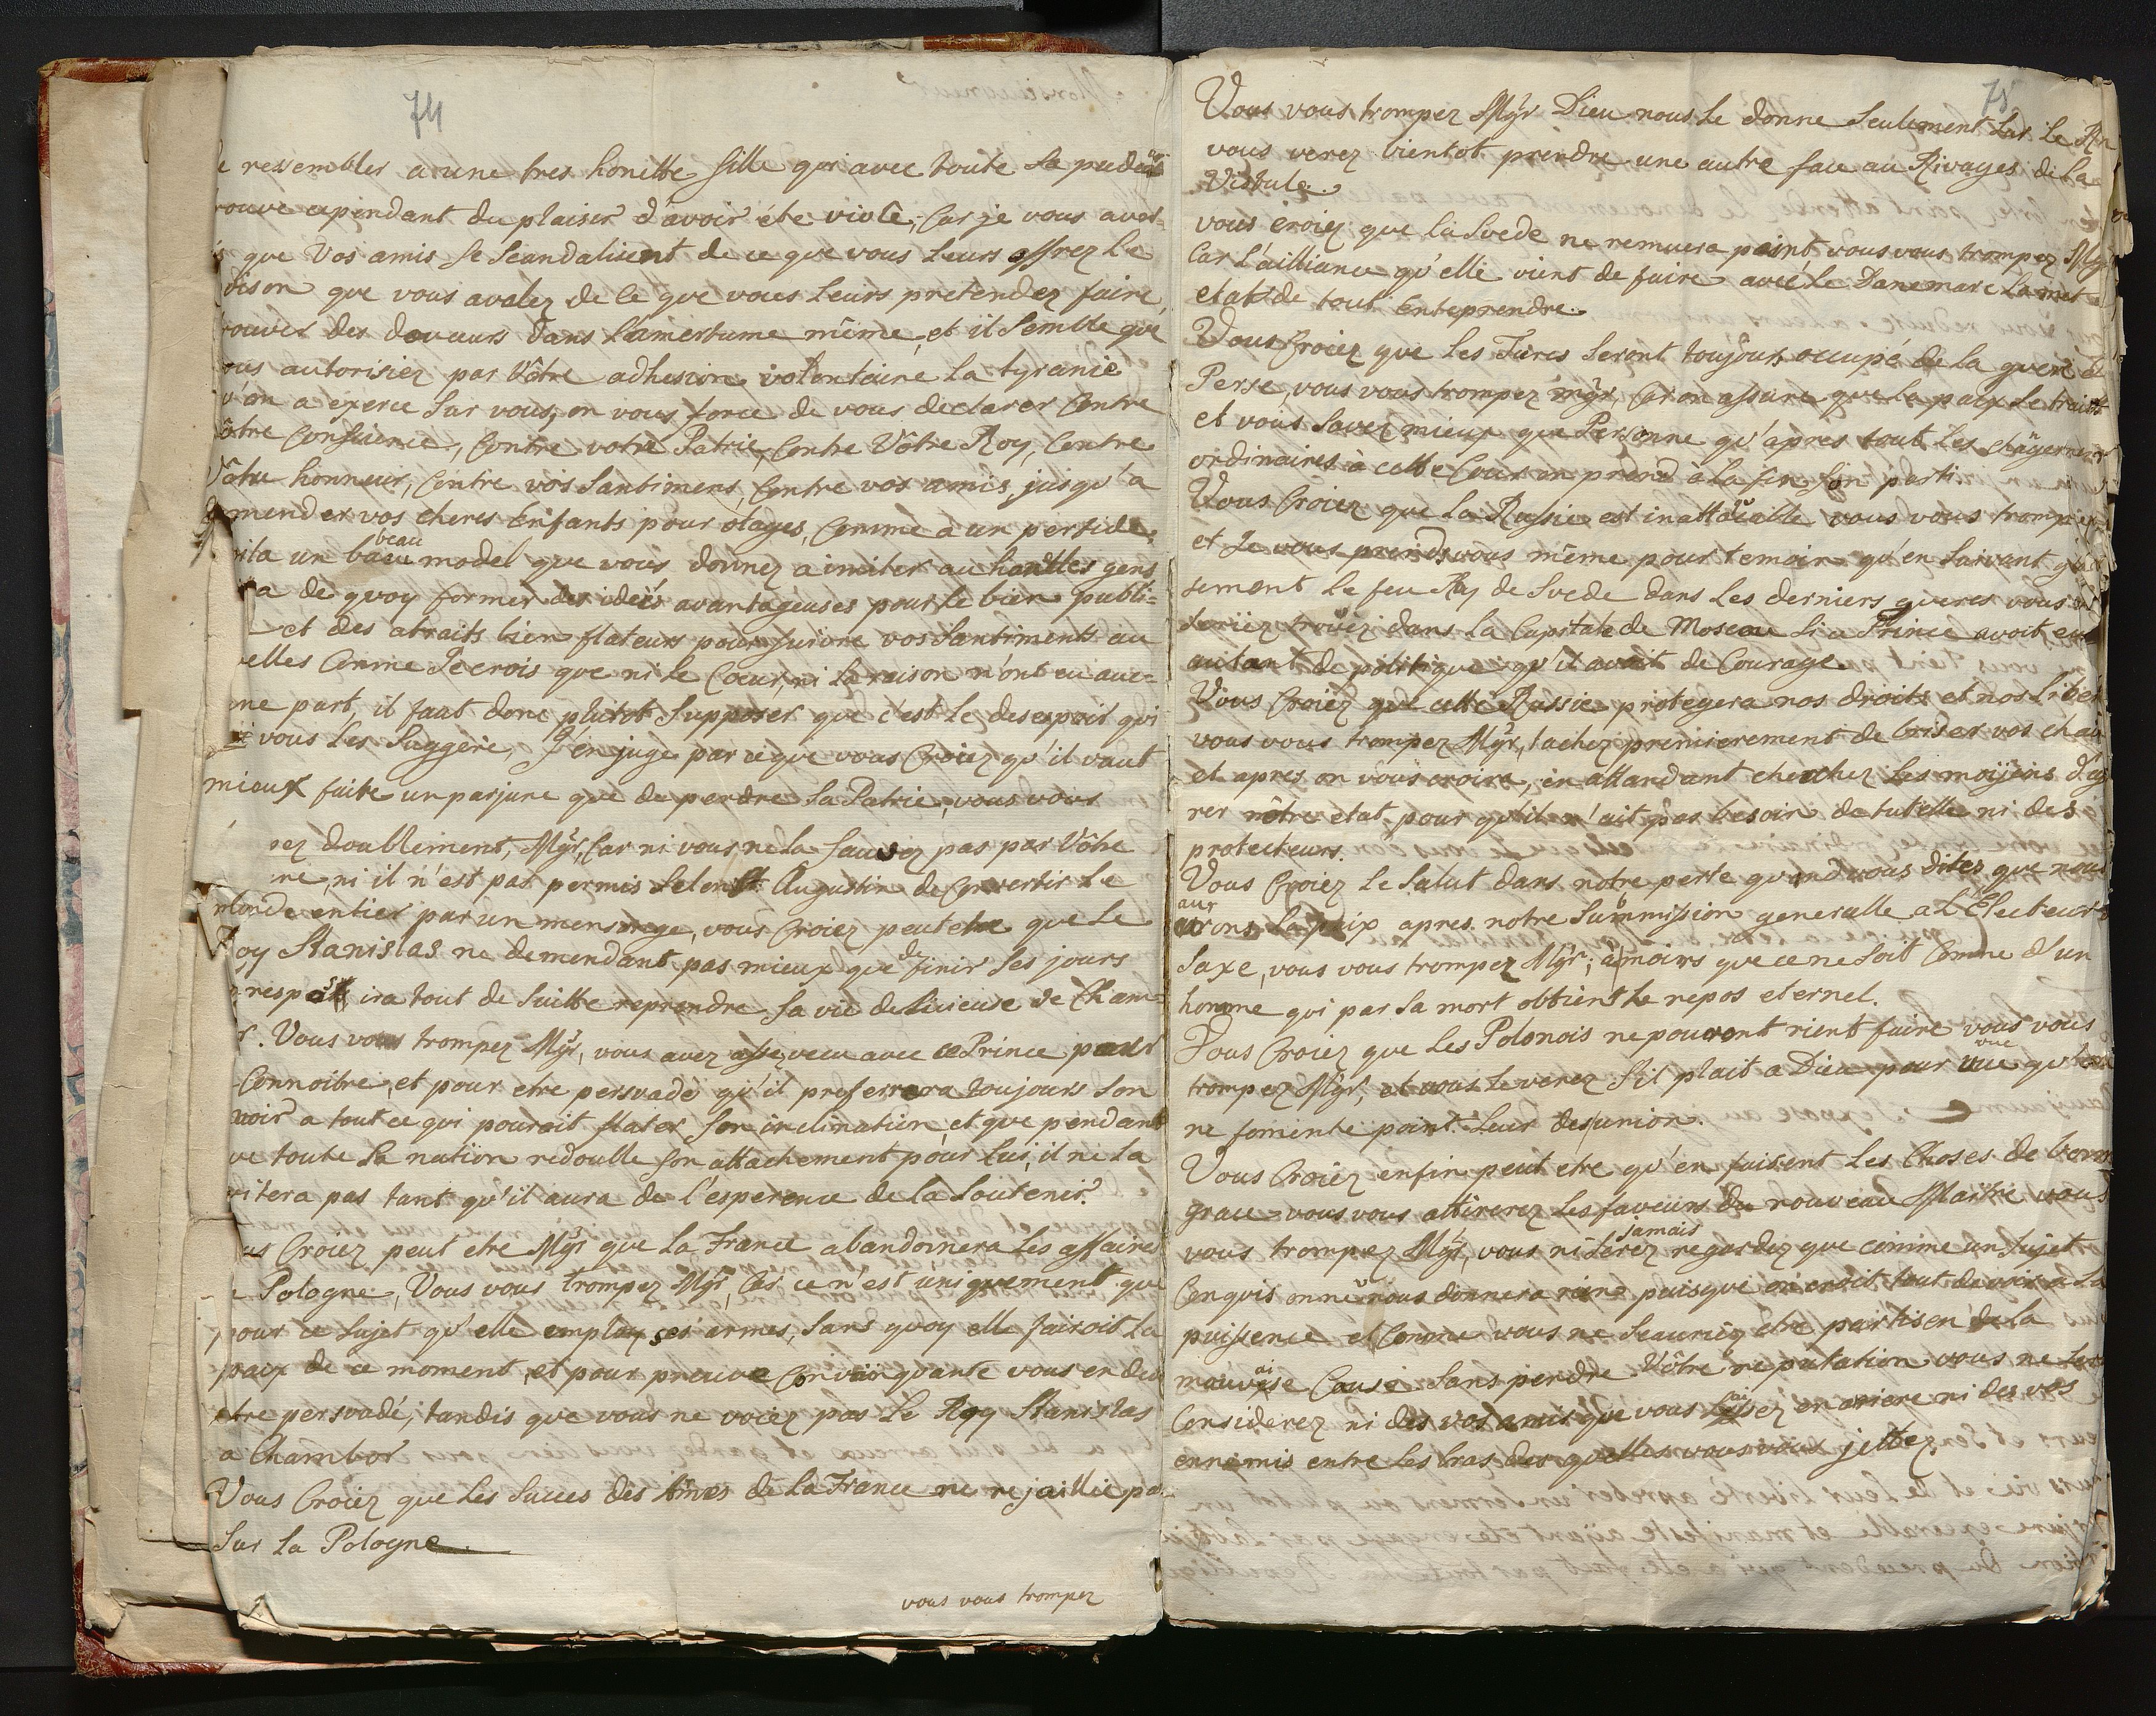 74
e ressembler a une tres honitte fille qui avec toute sa pudeur
rouve cependant du plaisir d'avoir été viole, Car je vous avor
s que vos amis se Scandalisent de ce que vous leurs offrez le
oison que vous avalez de ce que vous leurs pretendez faire
rouver des douceurs dans l'amertume même, et il semble que
ous autorisiez par Vôtre adhesion volontaire la tyranie
u'on a exerce sur vous, on vous force de vous declarer Contre
ôtre Conscience, Contre votre Patrie, Contre Vôtre Roy, Contre
Vôtre honneur, Contre vos santimens, Contre vos amis, jusqu'a
demender vos cheres Enfants pour otages, Comme a un perfide,
oila un beau model que vous donnez a imiter au honettes gens
ra de quoy former des ideés avantageuses pour le bien Publi=
et des atraits bien flateurs pour suivre vos Santiments au
elles Comme Je crois que ni le Coeur, ni la raison n'ont eu auc=
une part, il faat donc plutot Supposer que c'est le desespoir qui
vous les Suggere, J'en juge par ce que vous Croiez qu'il vaut
mieux faite un parjure que de perdre sa Patrie, vous vous
pez doublement, Mgr, Car ni vous ne la sauvez pas par Vôtre
me, ni il n'est pas permis selon St Augustin de Convertir le
Monde entier par un mensonge, vous Croiez peut etre que le
Roy Stanislas ne demendant pas mieux que de finir ses jours
n respos ira tout de Suitte reprendre sa vie delicieuse de Cham=
r. Vous vous trompez Mgr, vous avez asse veu avec ce Prince pour
Connoitre, et pour etre persvadé qu'il preferrera toujours son
voir a tout ce qui pouroit flater son inclination, et que pendant
ue toute sa nation redoulle son attachement pour lui, il ne la
itera pas tant qu'il aura de l'esperence de la Soutenir.
us Croiez peut etre Mgr que la France abandonnera les affaires
e Pologne, Vous vous trompez Mgr, Car ce n'est uniquement que
pour ce sujet qu'elle employ ses armes, Sans quoy elle fairoit la
paix de ce moment, et pour preuve Convainquante vous en dev
etre persvadé, tandis que vous ne voiez pas le Roy Stanislas
a Chambor
Vous Croiez que les Succes des Armes de la France ne rejaillie pa
Sur la Pologne
vous vous trompez
75
Vous vous trompez Mgr Dieu nous le donne seulement Sur le Rin
vous verez bientot prendre une autre face au Rivages de la
Vistule.
vous croiez que la Svede ne remuera point, vous vous trompez Mgr
Car L'ailliance qu'elle vient de faire avec le Danemarc la met
etat de tout Enteprendre.
Vous Croiez que les Turcs seront toujours occupé de la guerre d
Perse, vous vous trompez mgr, Car on assure que la paix se traitte
et vous savez mieux que Personne qu'apres tout les chang
ordinaires à cette Cour on prend à la fin son parti
Vous Croiez que la Russie est inattacable vous vous trompiez
et Je vous prends vous même pour temoin qu'en suivant g
sement le feu Roy de Svede dans les derniers gueres vous
seriez trouvez dans la Capitale de Moscou si a Prince avoit eu
autant de politique qu'il avoit de Courage.
Vous Croiez que cette Russie protegera nos droits et nos liber
vous vous trompez Mgr, tachez premierement de briser vos chai
et apres on vous croira, en attandant cherchez les moijens d'a
rer nôtre etat pour qu'il n'ait pas besoin de tutelle ni des
protecteurs.
Vous Croiez le Salut dans notre perte quand vous dites que nous
aurons la paix apres notre Submmission generalle a L'Electeur
Saxe, vous vous trompez Mgr; à moins que ce ne soit Comme d'un
homme qui par sa mort obtient le repos eternel.
Vous Croiez que les Polonois ne pouront rient faire vous vous
trompez Mgr, et vous le verez s'il plait a Dieu pour vue qu'on
ne fomente point leur desunion.
Vous Croiez enfin peut etre qu'en faisent les Choses de bonne
grace vous vous attirerez les faveurs du nouveau Maître vous
vous trompez Mgr, vous ne serez jamais regardez que comme un Sujet
Conquis on ne vous donnera rien puisque on croit tout devoir a la
puissence et Comme vous ne Scauriez etre partisen de la
mauvaise Cause Sans perdre Vôtre reputation vous ne ser
Considerez ni des vos amis que vous laissez en ariere ni des vos
ennemis entre les bras des quelles vous vous jettez